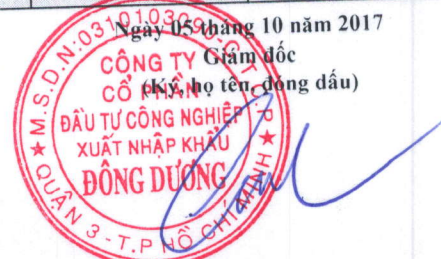 Ngày 05 tháng 10 năm 2017
Giám đốc
(Ký, họ tên, đóng dấu)
M.S.D.N:0310103090-C.T.C.P
CÔNG TY
CỔ PHẦN
ĐẦU TƯ CÔNG NGHIỆP
XUẤT NHẬP KHẨU
ĐÔNG DƯƠNG
QUẬN 3 - T.P HỒ CHÍ MINH